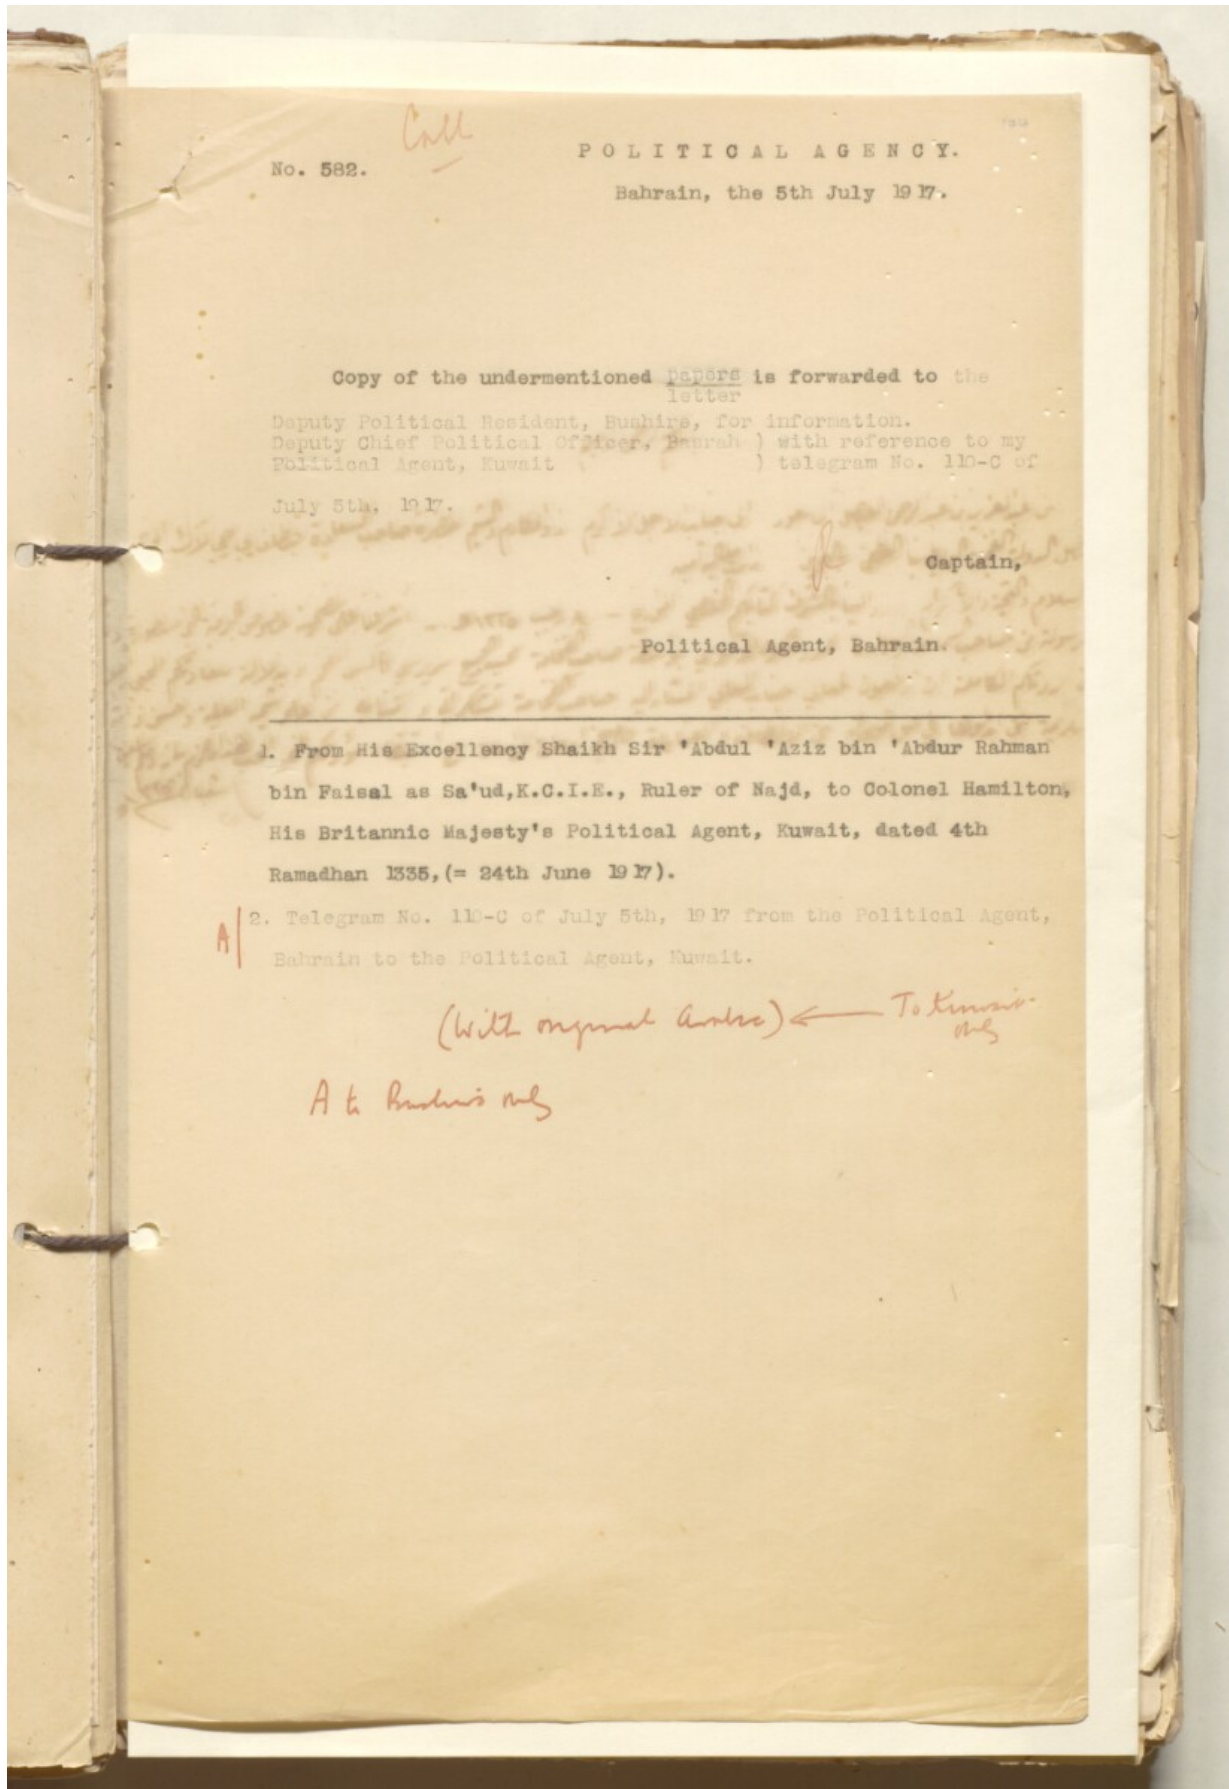 No. 582.
POLITICAL AGENCY.
Bahrain, the 5th July 1917.
Copy of the undermentioned papers is forwarded to the
letter
Deputy Political Resident, Bushire, for information.
Deputy Chief Political Officer, Basrah ) with reference to my
Political Agent, Kuwait ) telegram No. 110-C of
July 5th, 1917.
Captain,
Political Agent, Bahrain.
1. From His Excellency Shaikh Sir 'Abdul 'Aziz bin 'Abdur Rahman
bin Faisal as Sa'ud,K.C.I.E., Ruler of Najd, to Colonel Hamilton,
His Britannic Majesty's Political Agent, Kuwait, dated 4th
Ramadhan 1335,(= 24th June 1917).
A
2. Telegram No. 110-C of July 5th, 1917 from the Political Agent,
Bahrain to the Political Agent, Kuwait.
(With original Arabic) ← To Kuwait
only
A to Bushire only